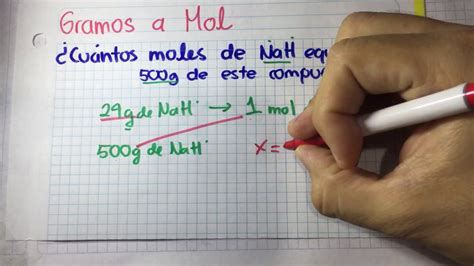 Gramos a Mol
¿Cuántos moles de NaH equ
500g de este compu
24g de NaH → 1 mol
500g de NaH x=